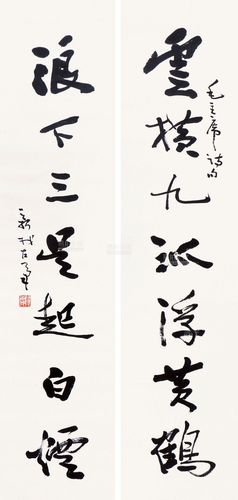 雲横九派浮黄鶴
毛主席詩句
浪下三吳起白煙